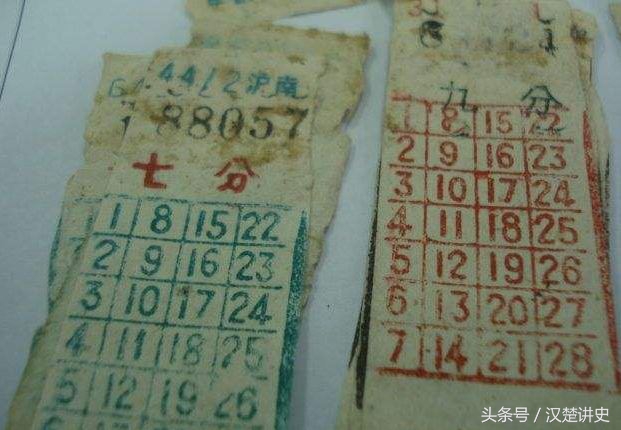 4412沪南
88057
七分
1 8 15 22
2 9 16 23
3 10 17 24
4 11 18 25
5 12 19 26
九分
1 8 15 22
2 9 16 23
3 10 17 24
4 11 18 25
5 12 19 26
6 13 20 27
7 14 21 28
头条号／汉楚讲史